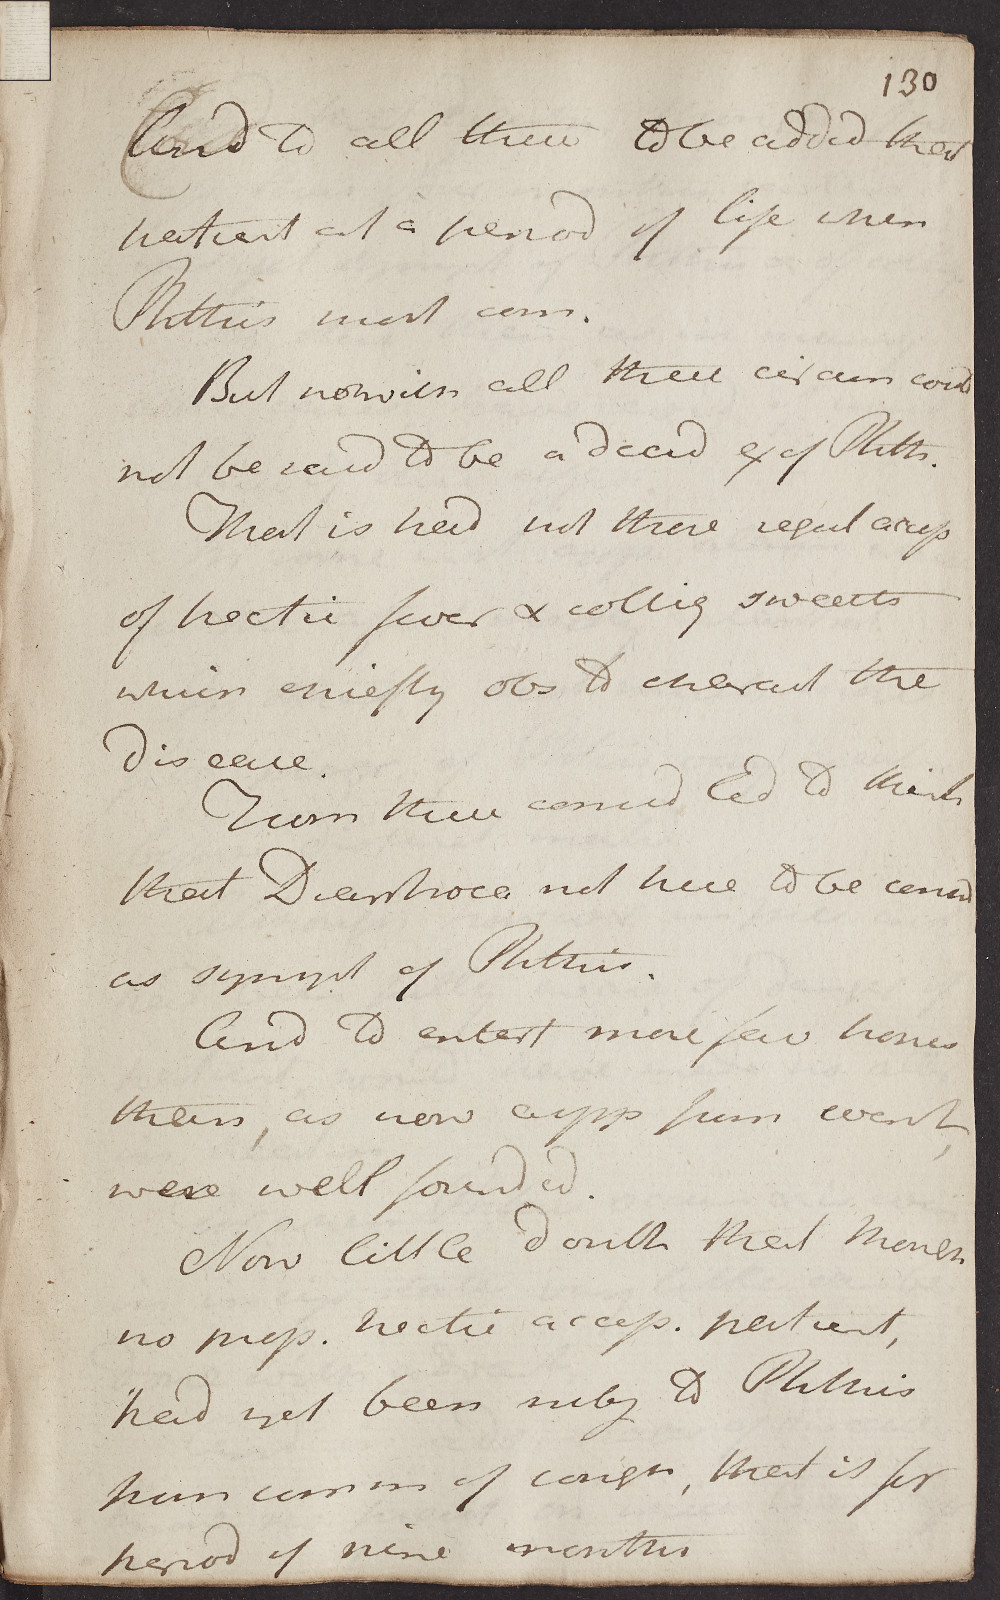 130
And to all these to be added that
patient at a period of life when
Phthisis most com.
But notwith all these circum could
not be said to be a decid ex of Phth.
That is had not those regul accep
of hectic fever & colliq sweats
which chiefly obs to charact the
disease.
From these consid led to think
that Diarrhoea not here to be consid
as sympt of Phthisis.
And to entert more fav hopes
than, as now app from event,
were well founded.
Now little doubt that though
no prop. hectic accep. patient,
had yet been subj to Phthisis
from comm of cough, that is for
period of nine months